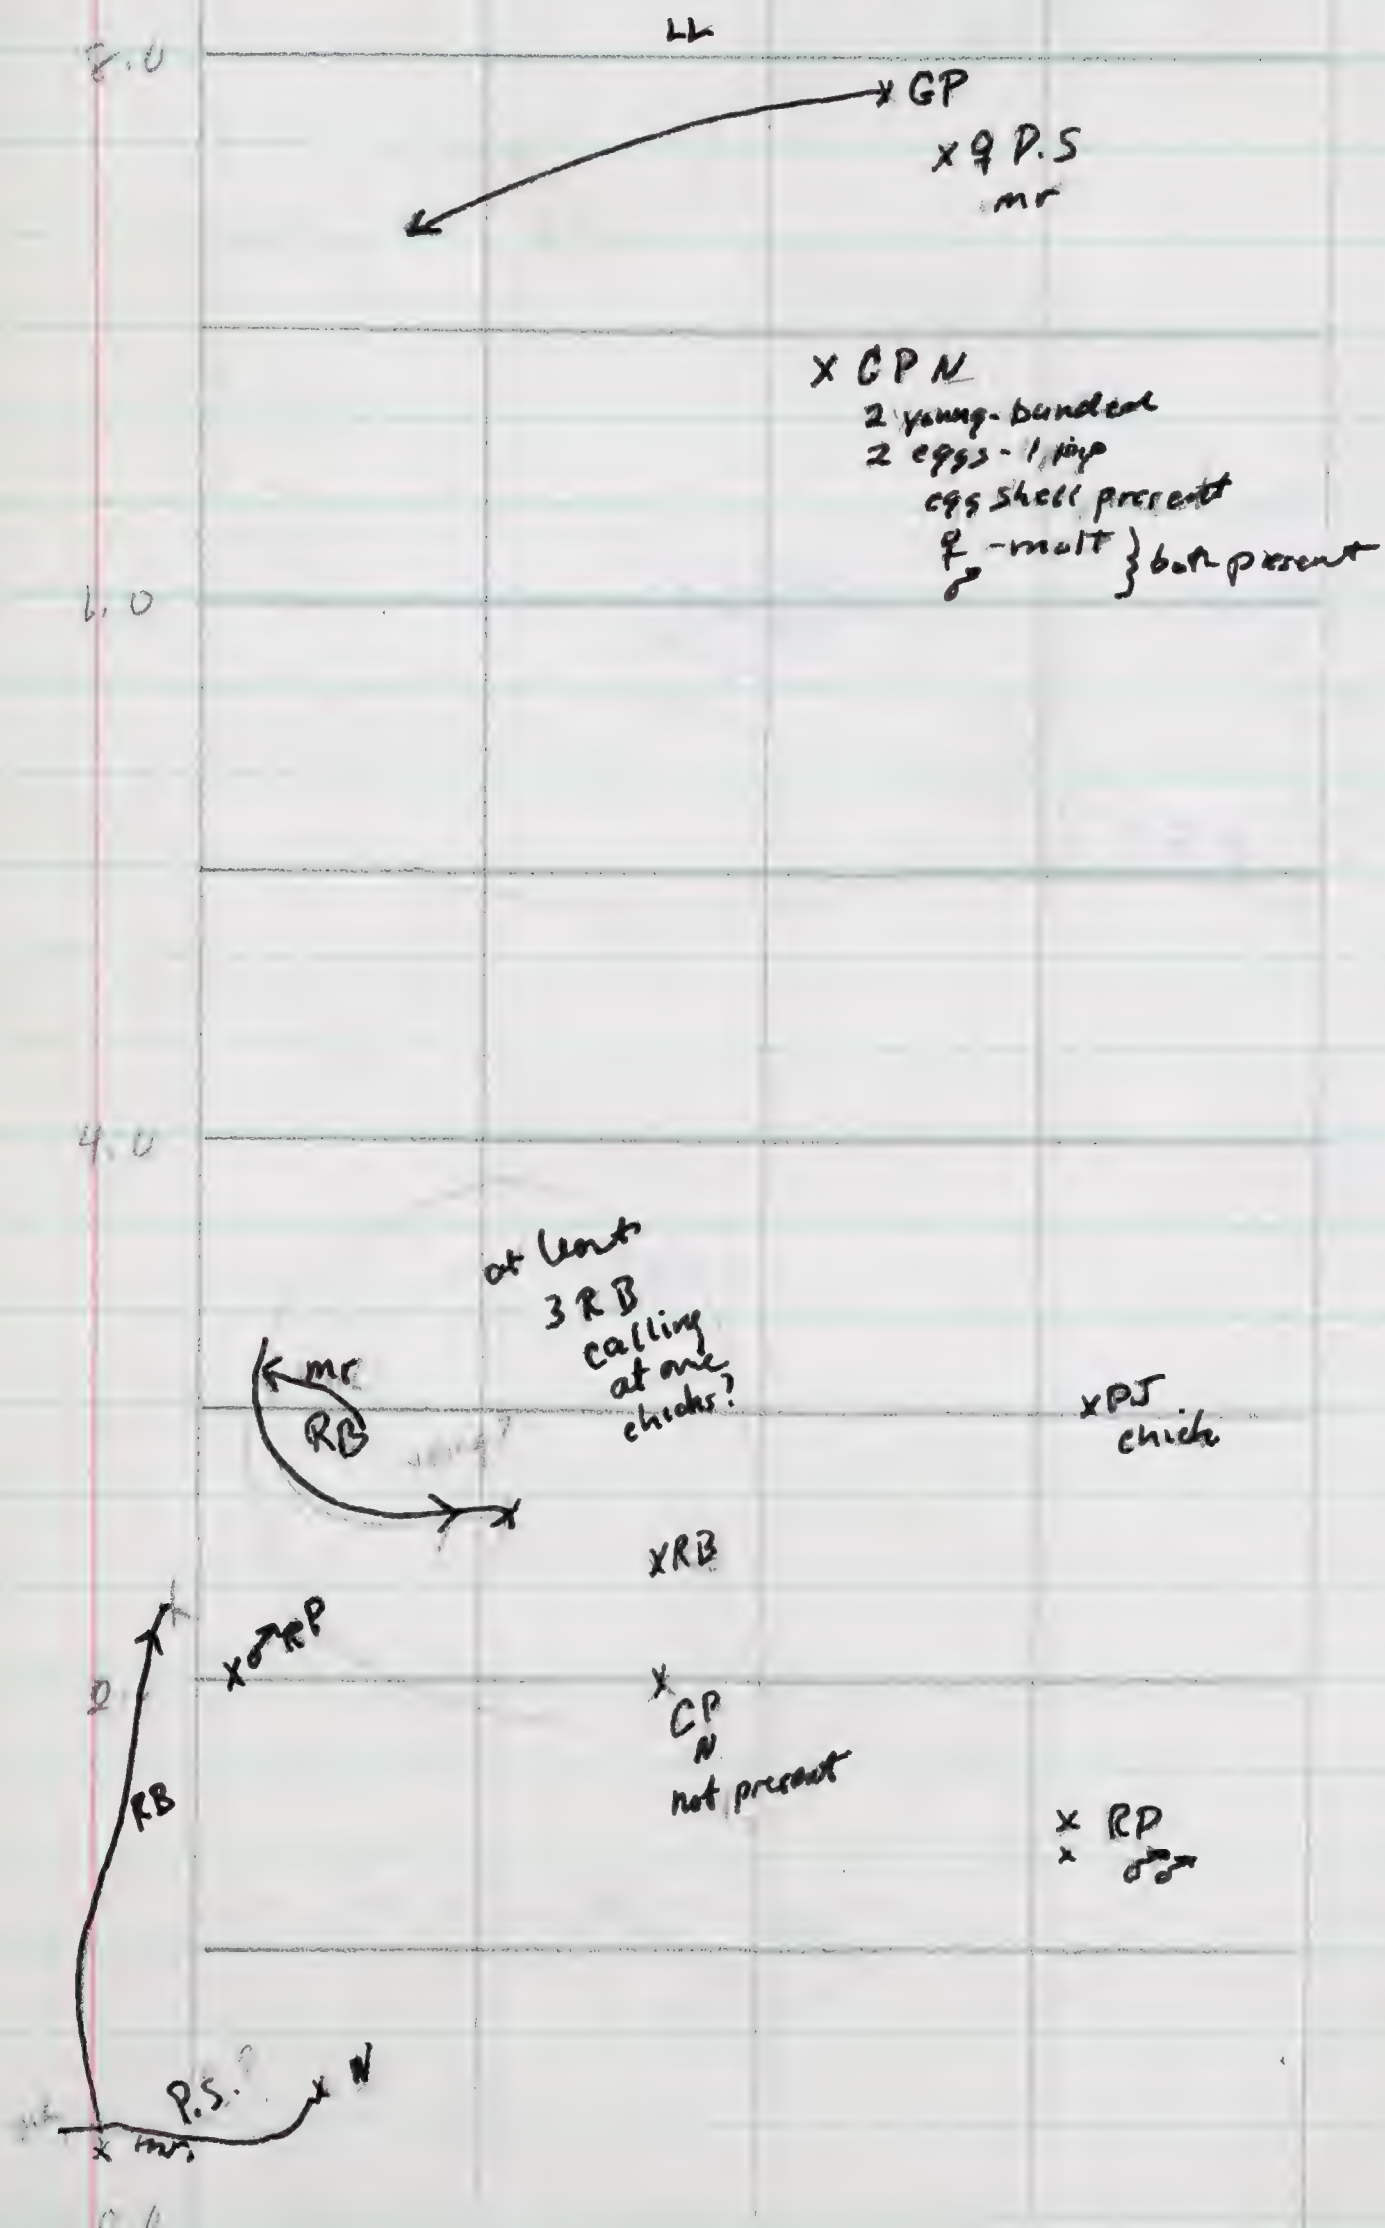 LL
8.0
x GP
x ♀ P.S
mr
x GPN
2 young-banded
2 eggs - 1 pip
egg shell present
♀ -molt } both present
♂
6.0
4.0
at least
3 RB
calling
at one
chicks?
mr
RB
x PJ
chick
xRB
x♂RP
x
CP
N
not present
RB
x RP
x ♂♂
P.S.?
x N
x